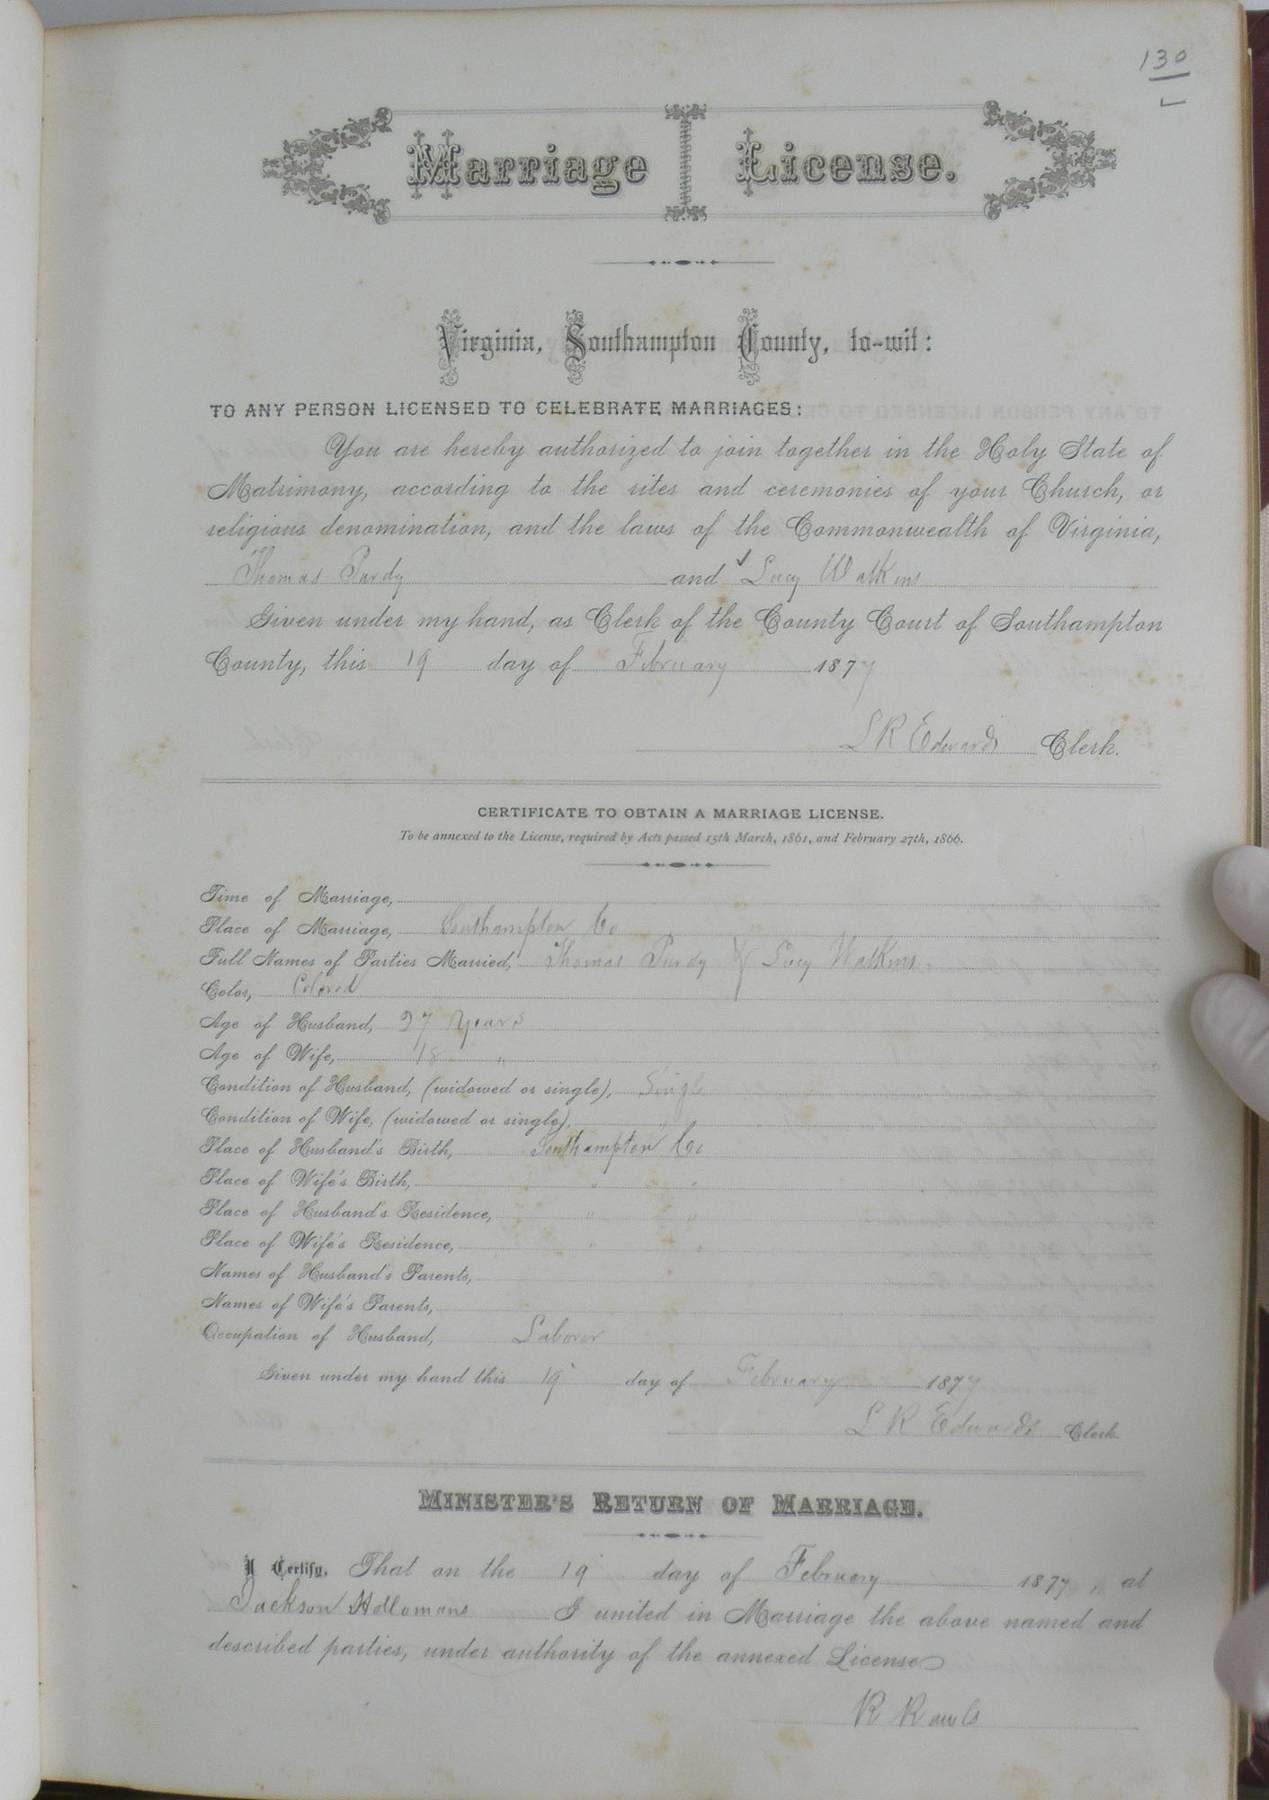 130
Marriage License.
Virginia, Southampton County, to-wit:
TO ANY PERSON LICENSED TO CELEBRATE MARRIAGES:
You are hereby authorized to join together in the Holy State of
Matrimony, according to the rites and ceremonies of your Church, or
religious denomination, and the laws of the Commonwealth of Virginia,
Thomas Purdy and Lucy Watkins
Given under my hand, as Clerk of the County Court of Southampton
County, this 19 day of February 1877
L R Edwards Clerk.
CERTIFICATE TO OBTAIN A MARRIAGE LICENSE.
To be annexed to the License, required by Acts passed 15th March, 1861, and February 27th, 1866.
Time of Marriage,
Place of Marriage, Southampton Co
Full Names of Parties Married, Thomas Purdy & Lucy Watkins
Color, Colored
Age of Husband, 27 Years
Age of Wife, 18 "
Condition of Husband, (widowed or single), Single
Condition of Wife, (widowed or single), "
Place of Husband's Birth, Southampton Co
Place of Wife's Birth, " "
Place of Husband's Residence, " "
Place of Wife's Residence, " "
Names of Husband's Parents,
Names of Wife's Parents,
Occupation of Husband, Laborer
Given under my hand this 19 day of February 1877
L R Edwards Clerk
MINISTER'S RETURN OF MARRIAGE.
I Certify, That on the 19 day of February 1877, at
Jackson Hollomans I united in Marriage the above named and
described parties, under authority of the annexed License
R Rawls